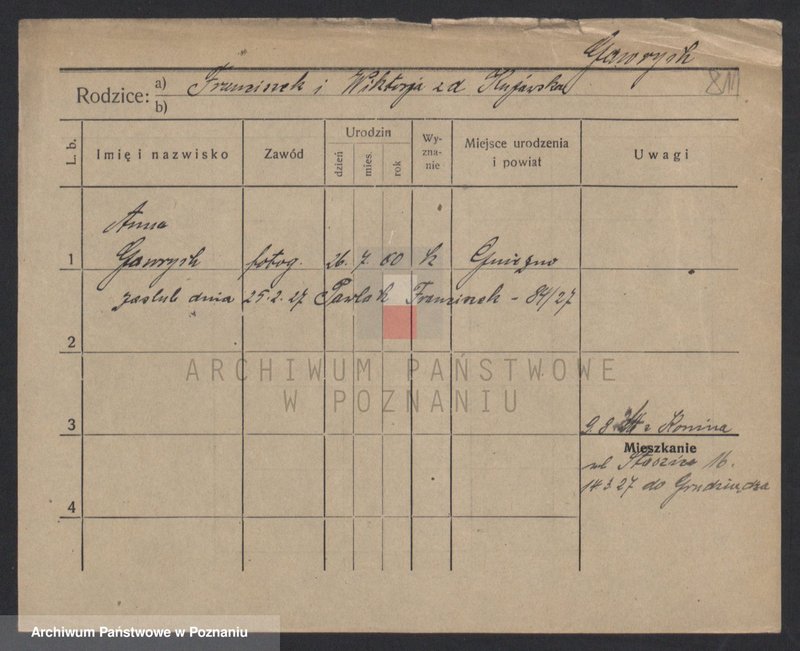 Gawrych
Rodzice: a) Franciszek i Wiktorja z d Kujawska
b)
L. b. Imię i nazwisko Zawód Urodzin dzień mies. rok Wy-zna-nie Miejsce urodzenia i powiat Uwagi
Anna
1 Gawrych fotog. 26. 7. 00 k Gniezno
zaślub dnia 25.2.27 Pawlak Franciszek - 84/27
2
ARCHIWUM PAŃSTWOWE
W POZNANIU
3 z Konina
Mieszkanie
ul Staszica 16.
14.3.27 do Grudziądza
4
Archiwum Państwowe w Poznaniu